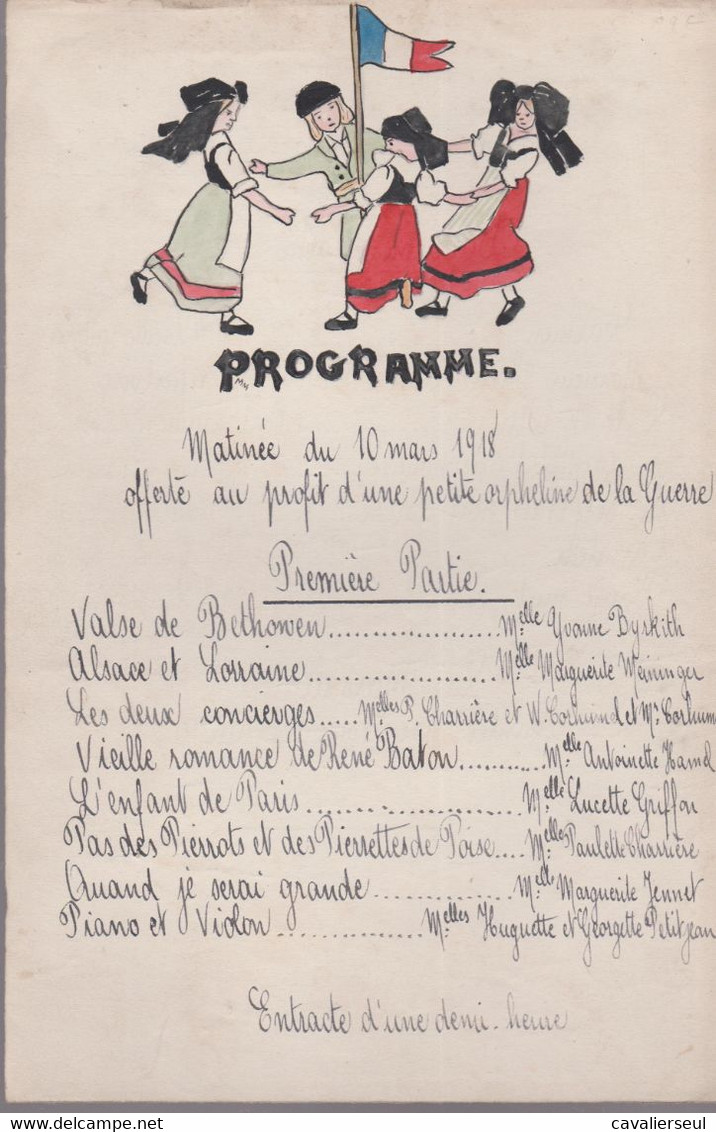 PROGRAMME.
Matinée du 10 mars 1918
offerte au profit d'une petite orpheline de la Guerre
Première Partie.
Valse de Bethowen .................... Melle Yvonne Byskith
Alsace et Lorraine ...................... Melle Marguerite Meininger
Les deux concierges ..... Melles P. Charrière et W. et M.
Vieille romance de René Baton .......... Melle Antoinette Hamel
L'enfant de Paris ......................... Melle Lucette Griffon
Pas des Pierrots et des Pierrettes de Poise .... Melle Paulette Charrière
Quand je serai grande ................ Melle Marguerite Jennet
Piano et Violon ................. Melles Huguette et Georgette Petitjean
Entracte d'une demi-heure
www.delcampe.net
cavalierseul